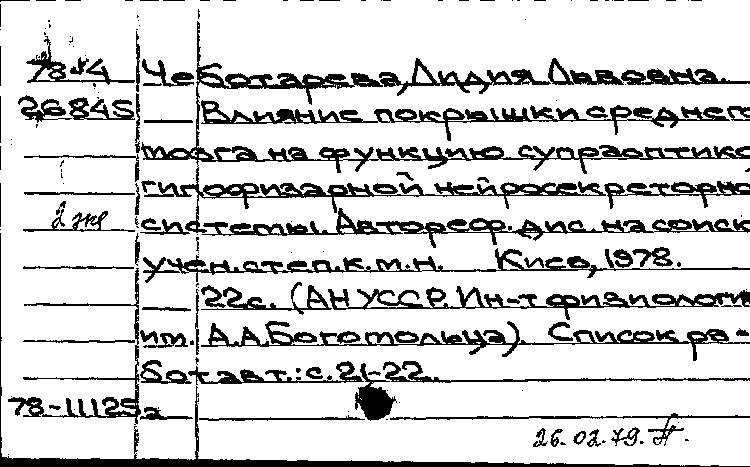 78-4 Чеботарева, Лидия Львовна.
26845 Влияние покрышки среднего
мозга на функцию супраоптико
гипофизарной нейросекреторно
2 экз системы. Автореф. дис. на соиск
учен. степ. к.м.н. Киев, 1978.
22с. (АН УССР. Ин-т физиологи
им. А.А.Богомольца). Список ра-
бот авт.: с. 21-22.
78-11125а
26.02.79.